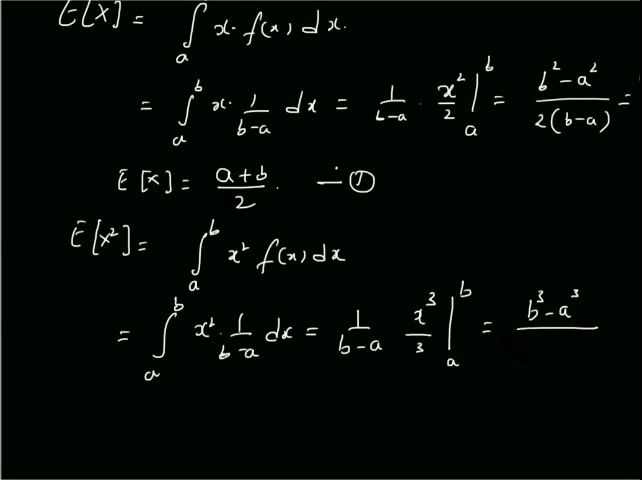 E[X] = ∫ₐ x. f(x) dx.
= ∫ₐᵇ x. 1/(b-a) dx = 1/(b-a) . x²/2 |ₐᵇ = (b²-a²)/(2(b-a)) =
E[X] = (a+b)/2. — ①
E[X²] = ∫ₐᵇ x² f(x) dx
= ∫ₐᵇ x². 1/(b-a) dx = 1/(b-a) x³/3 |ₐᵇ = b³-a³/